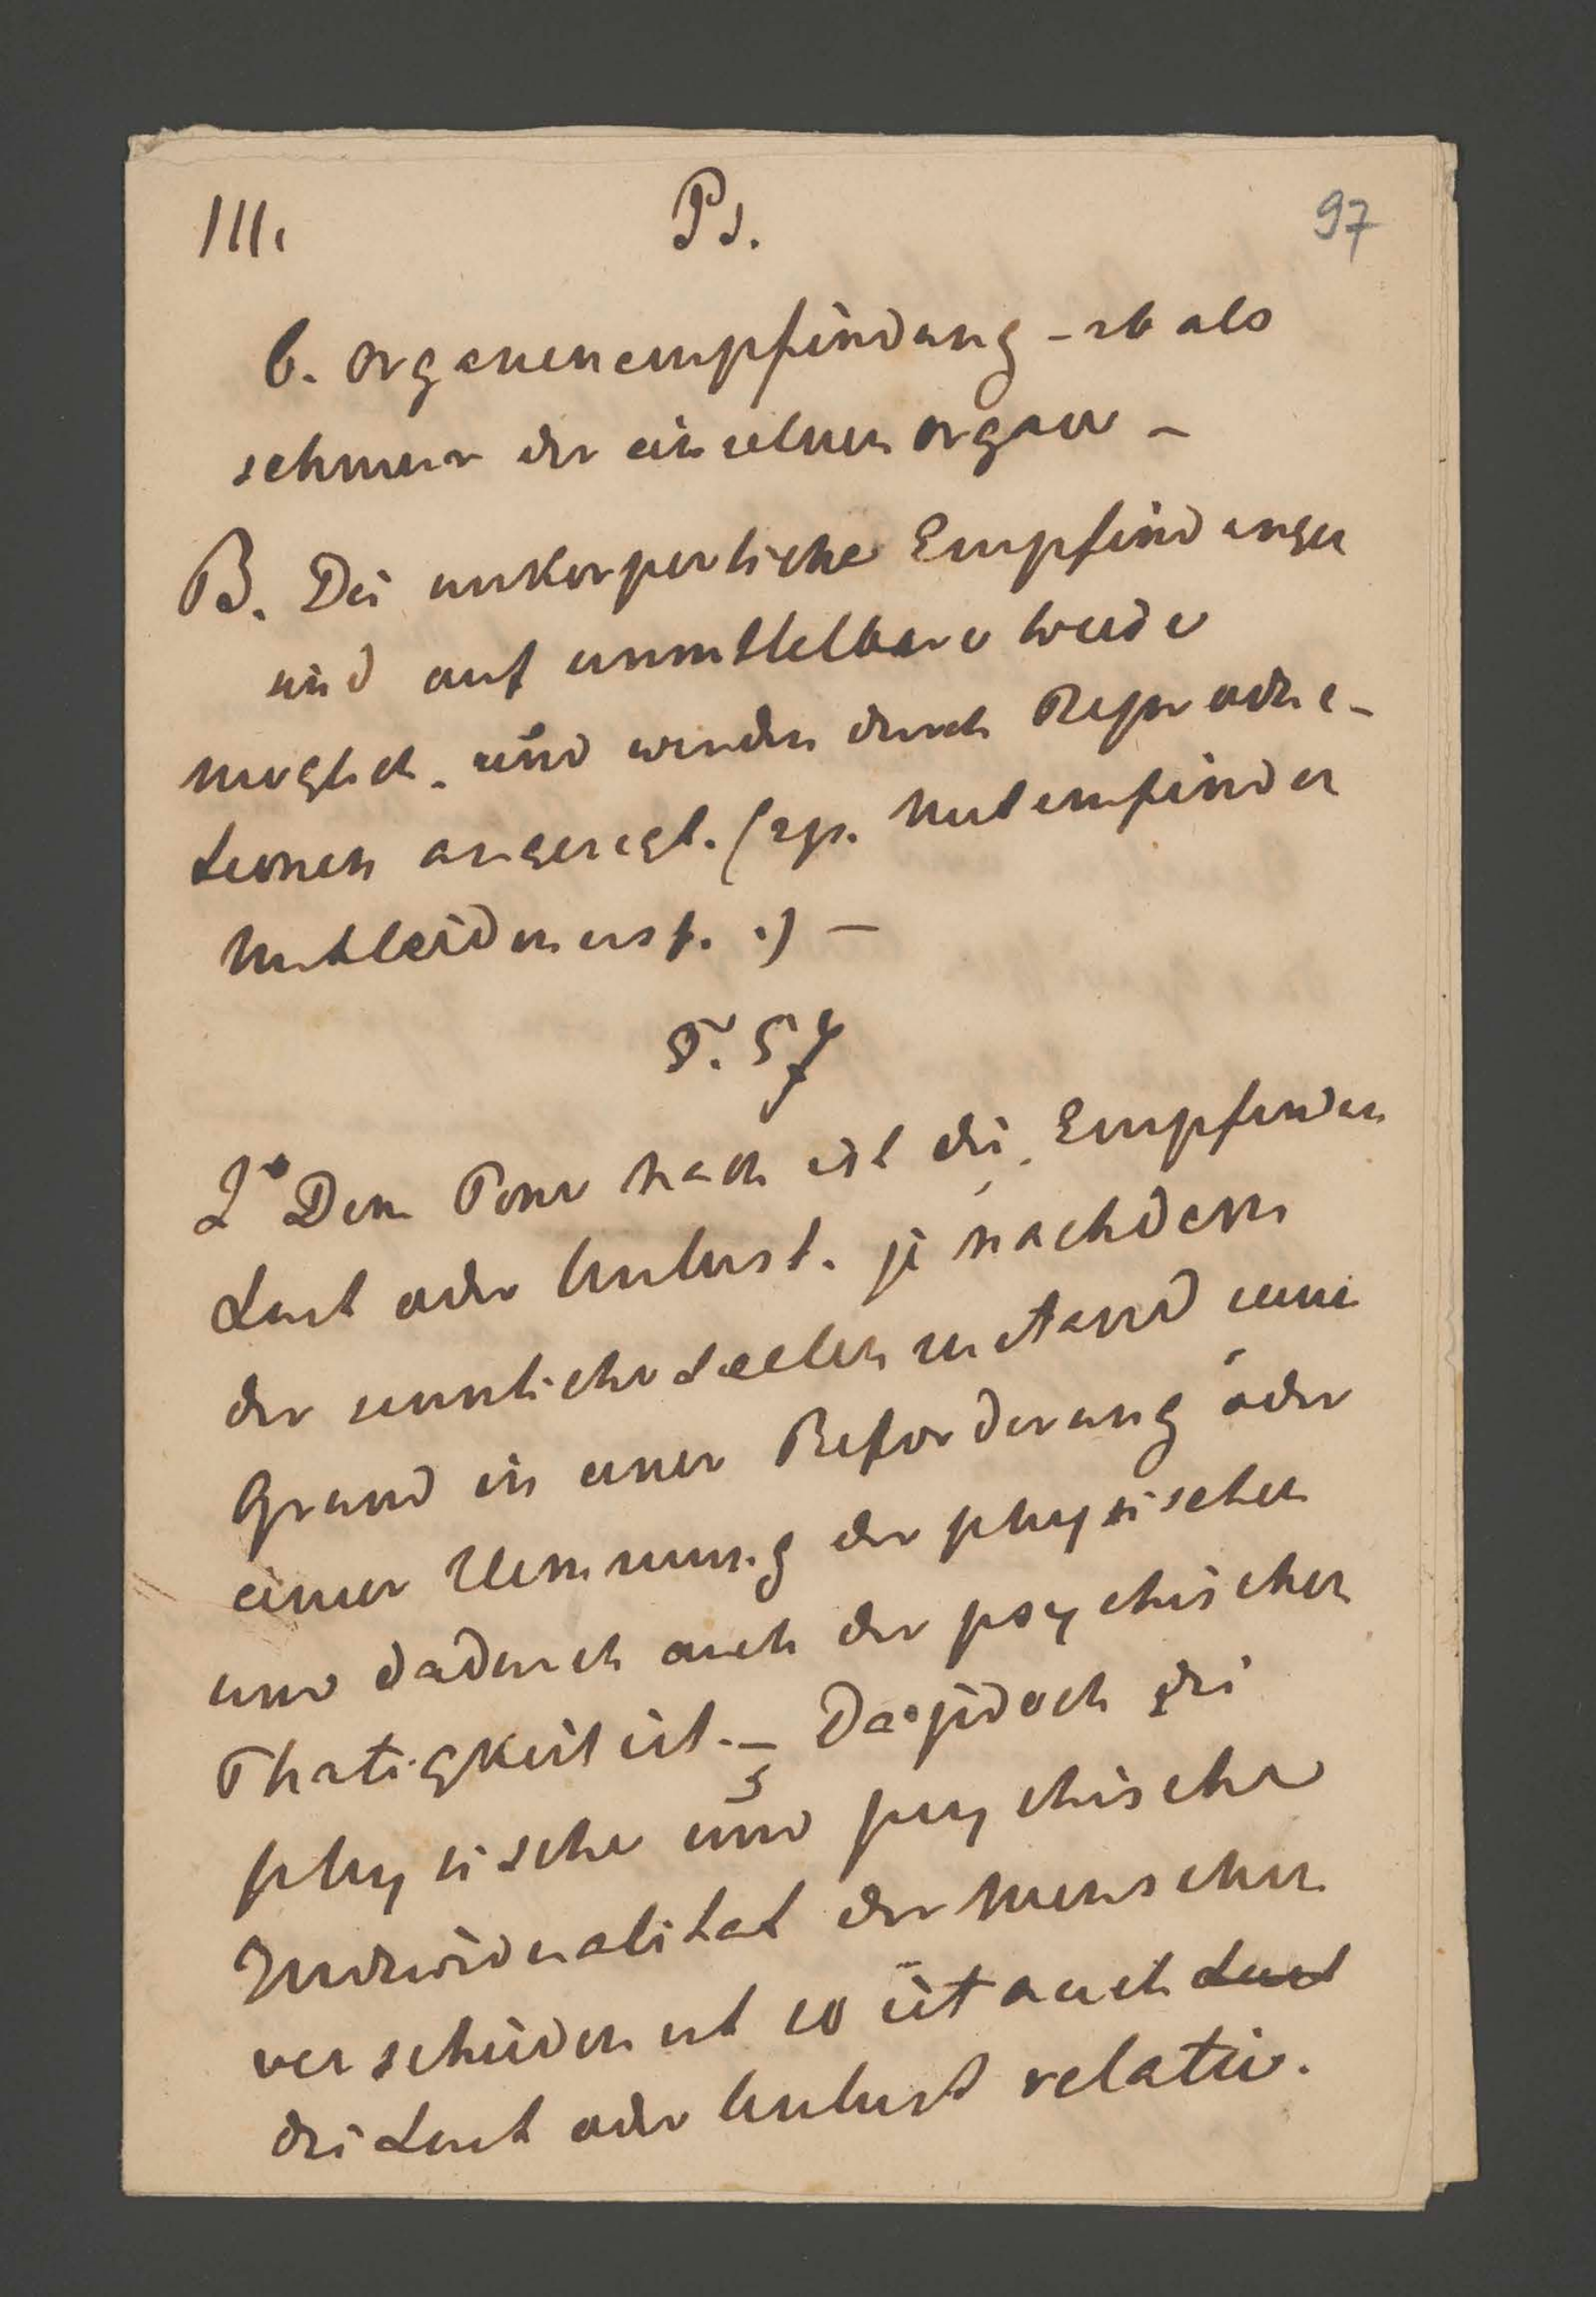 III. Ps. 97
b. organenempfindung - zb als
schmerz der einzelnen organe -
B. Die unkorperliche Empfindungen
sind auf unmittelbare
moglich. und werden durch Reproduc-
tionen angeregt. (zp. Mitemfinden
Mitleiden usf. .) -
§. 57
2° Dem Tone nach ist die Empfinden
Lust oder Unlust. je nachdem
der sinnliche Seelenzustand seine
Grund in einer Beforderung oder
einer Hemmung der physischen
und dadurch auch der psychischen
Thatigkeit ist. - Da jedoch die
physische und psychische
Individualitat der Menschen
verschieden ist so ist auch Lust
die Lust oder Unlust relativ.